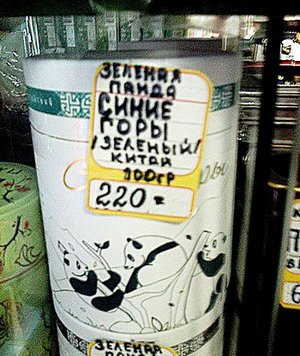 ЗЕЛЕНАЯ
ПАНДА
СИНИЕ
ГОРЫ
/ЗЕЛЕНЫЙ/
КИТАЙ
100гр
220=
ЗЕЛЕНАЯ